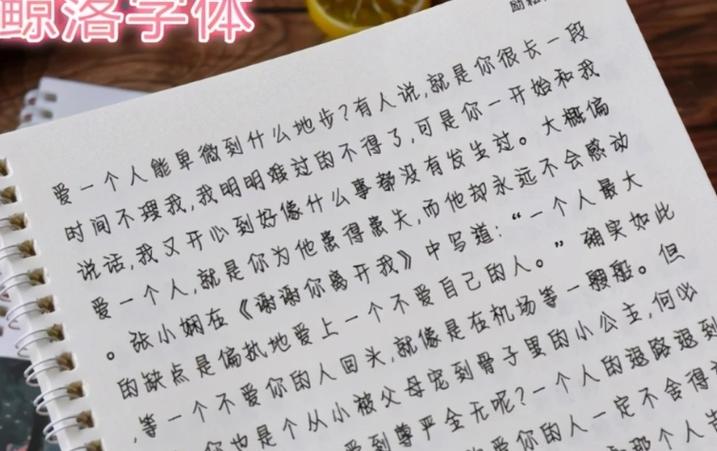 鲸落字体
爱一个人能卑微到什么地步?有人说,就是你很长一段
时间不理我,我明明难过的不得了,可是你一开始和我
说话,我又开心到好像什么事都没有发生过。大概偏
爱一个人,就是你为他患得患失,而他却永远不会感动
。张小娴在《谢谢你离开我》中写道:“一个人最大
的缺点是偏执地爱上一个不爱自己的人。”确实如此
,等一个不爱你的人回头,就像是在机场等一艘船。但
你也是个从小被父母宠到骨子里的小公主,何必
爱到尊严全无呢?一个人的退路退到
爱你的人一定不会得
那个人